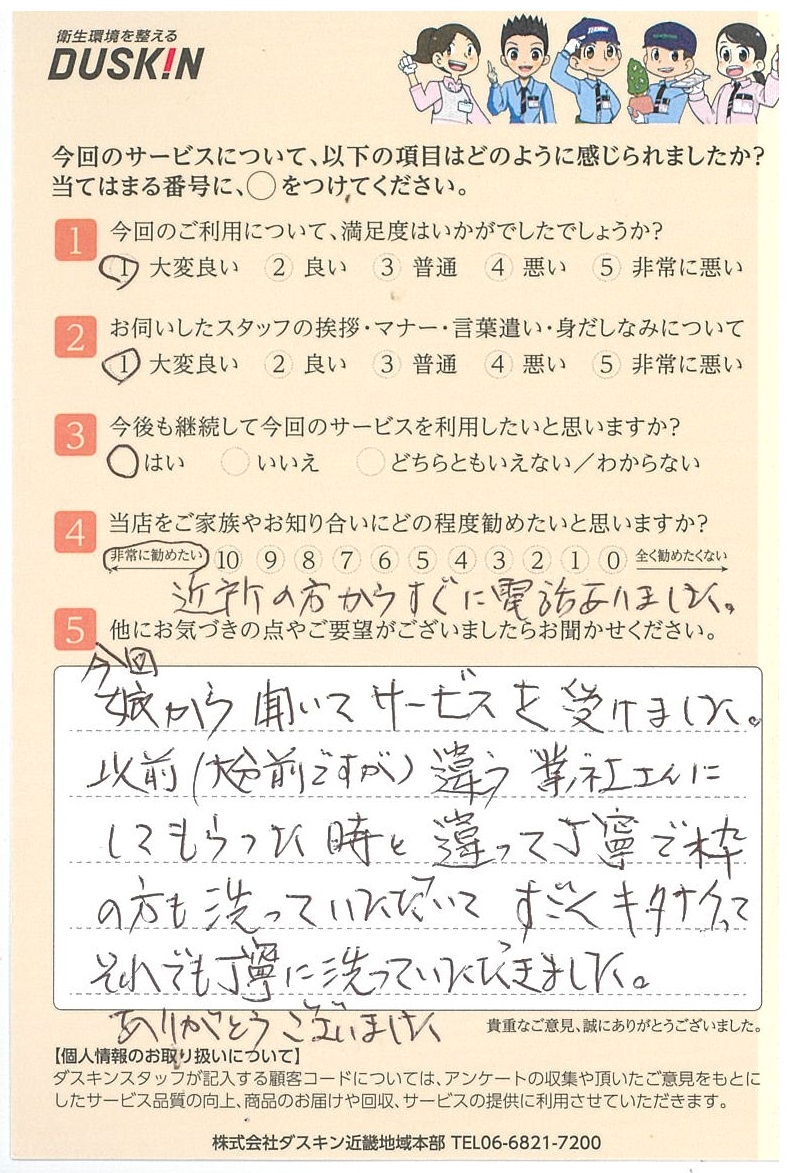 衛生環境を整える
DUSKIN
今回のサービスについて、以下の項目はどのように感じられましたか?
当てはまる番号に、◯をつけてください。
1 今回のご利用について、満足度はいかがでしたでしょうか?
1 大変良い 2 良い 3 普通 4 悪い 5 非常に悪い
2 お伺いしたスタッフの挨拶・マナー・言葉遣い・身だしなみについて
1 大変良い 2 良い 3 普通 4 悪い 5 非常に悪い
3 今後も継続して今回のサービスを利用したいと思いますか?
はい いいえ どちらともいえない/わからない
4 当店をご家族やお知り合いにどの程度勧めたいと思いますか?
非常に勧めたい 10 9 8 7 6 5 4 3 2 1 0 全く勧めたくない
近所の方からすぐに電話ありました。
5 他にお気づきの点やご要望がございましたらお聞かせください。
今回
娘から聞いてサービスを受けました。
以前(大分前ですが)違う業社さんに
してもらった時と違って丁寧で枠
の方も洗っていただいてすごくキタナクって
それでも丁寧に洗っていただきました。
ありがとうございました
貴重なご意見、誠にありがとうございました。
【個人情報のお取り扱いについて】
ダスキンスタッフが記入する顧客コードについては、アンケートの収集や頂いたご意見をもとに
したサービス品質の向上、商品のお届けや回収、サービスの提供に利用させていただきます。
株式会社ダスキン近畿地域本部 TEL06-6821-7200